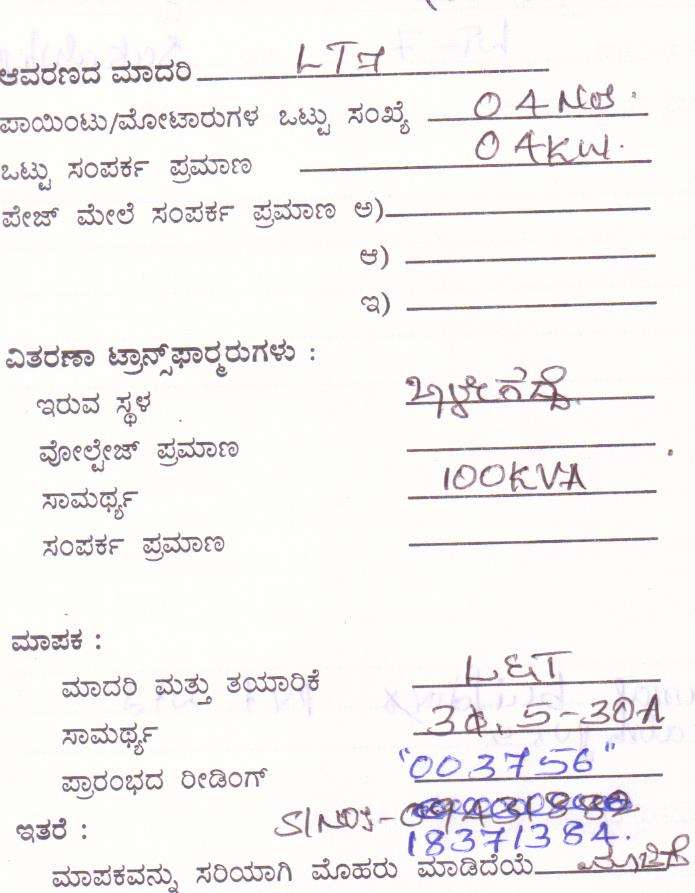 ಆವರಣದ ಮಾದರಿ LT7
ಪಾಯಿಂಟು/ಮೋಟಾರುಗಳ ಒಟ್ಟು ಸಂಖ್ಯೆ 04 Nos.
ಒಟ್ಟು ಸಂಪರ್ಕ ಪ್ರಮಾಣ 04KW.
ಪೇಜ್ ಮೇಲೆ ಸಂಪರ್ಕ ಪ್ರಮಾಣ ಅ)
ಆ)
ಇ)
ವಿತರಣಾ ಟ್ರಾನ್ಸ್‌ಫಾರ್‍ಮರುಗಳು :
ಇರುವ ಸ್ಥಳ
ವೋಲ್ಟೇಜ್ ಪ್ರಮಾಣ
ಸಾಮರ್ಥ್ಯ 100KVA
ಸಂಪರ್ಕ ಪ್ರಮಾಣ
ಮಾಪಕ :
ಮಾದರಿ ಮತ್ತು ತಯಾರಿಕೆ L&T
ಸಾಮರ್ಥ್ಯ 3ϕ, 5-30A
ಪ್ರಾರಂಭದ ರೀಡಿಂಗ್ "003756"
ಇತರೆ : Sl No:-
18371384.
ಮಾಪಕವನ್ನು ಸರಿಯಾಗಿ ಮೊಹರು ಮಾಡಿದೆಯೆ